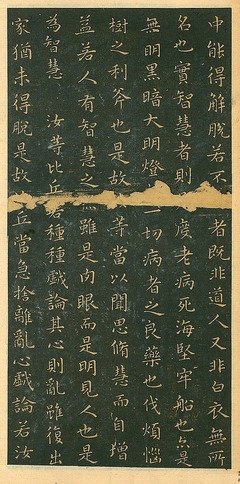 中能得解脫若不者既非道人又非白衣無所
名也實智慧者則度老病死海堅牢船也亦是
無明黑暗大明燈一切病者之良藥也伐煩惱
樹之利斧也是故等當以聞思脩慧而自增
益若人有智慧之雖是肉眼而是明見人也是
為智慧汝等比丘若種種戲論其心則亂雖復出
家猶未得脫是故丘當急捨離亂心戲論若汝